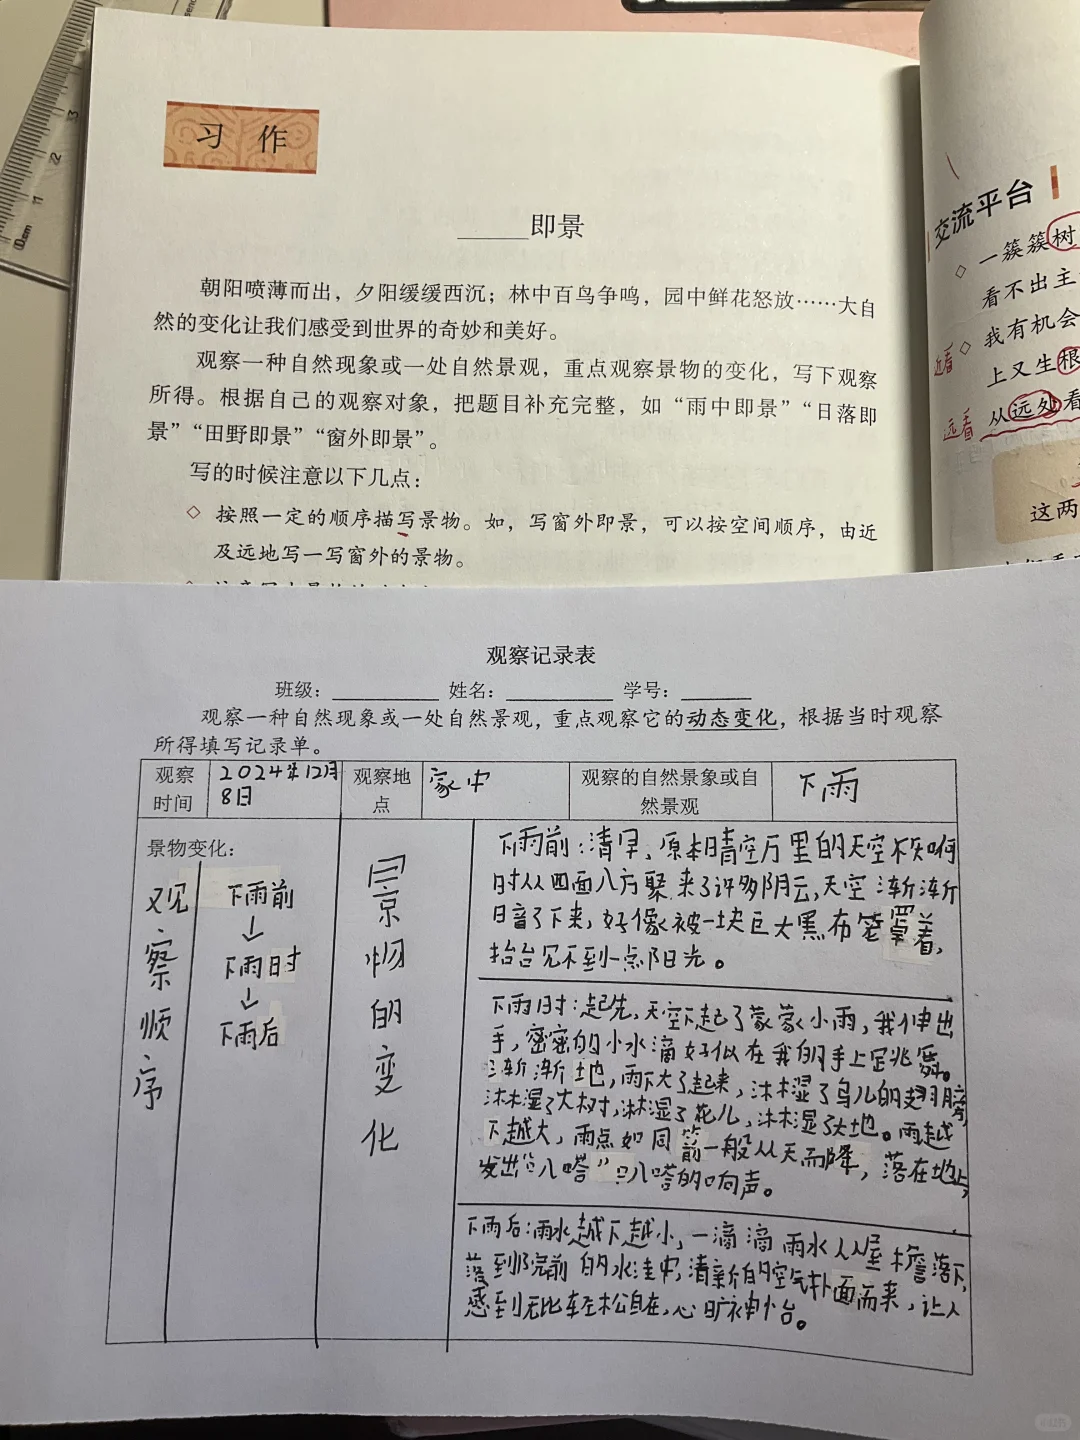 习 作
______即景
朝阳喷薄而出，夕阳缓缓西沉；林中百鸟争鸣，园中鲜花怒放……大自
然的变化让我们感受到世界的奇妙和美好。
观察一种自然现象或一处自然景观，重点观察景物的变化，写下观察
所得。根据自己的观察对象，把题目补充完整，如“雨中即景”“日落即
景”“田野即景”“窗外即景”。
写的时候注意以下几点：
◇ 按照一定的顺序描写景物。如，写窗外即景，可以按空间顺序，由近
及远地写一写窗外的景物。
交流平台
◇ 一簇簇树
看不出主
◇ 我有机会
上又生根
从远处看
近看
远看
这两
观察记录表
班级：________ 姓名：________ 学号：______
观察一种自然现象或一处自然景观，重点观察它的动态变化，根据当时观察
所得填写记录单。
观察时间
2024年12月8日
观察地点
家中
观察的自然景象或自然景观
下雨
景物变化：
观察顺序
下雨前
↓
下雨时
↓
下雨后
景物的变化
下雨前：清早，原本晴空万里的天空不知何
时从四面八方聚来了许多阴云，天空渐渐
暗了下来，好像被一块巨大黑布笼罩着，
抬台见不到一点阳光。
下雨时：起先，天空下起了蒙蒙小雨，我伸出
手，密密的小水滴好似在我的手上跳舞。
渐渐地，雨下大了起来，沐湿了鸟儿的翅膀，
沐湿了大树，淋湿了花儿，沐湿了大地。雨越
下越大，雨点如同箭一般从天而降，落在地上，
发出“叭嗒”“叭嗒的响声。
下雨后：雨水越下越小，一滴滴雨水从屋檐落下，
落到院前的水洼中，清新的空气扑面而来，让人
感到无比轻松自在，心旷神怡。